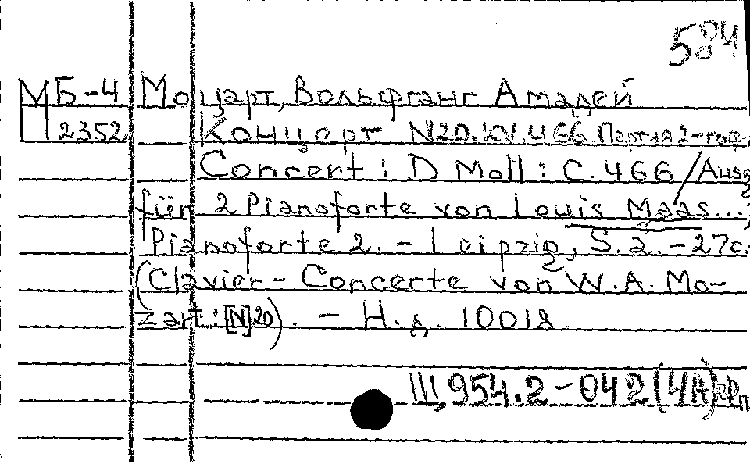 584
МБ-4 Моцарт, Вольфганг Амадей
М 2352 Концерт N20. KV. 466 Партия 2-го ф.
Concert: D Moll: C. 466 / Ausg
für 2 Pianoforte von Louis Maas...;
Pianoforte 2. - Leipzig, S.a. - 27c.
(Clavier-Concerte von W.A. Mo-
zart: [N] 20). - Н.д. 10018
Ш 954.2-042(4А)